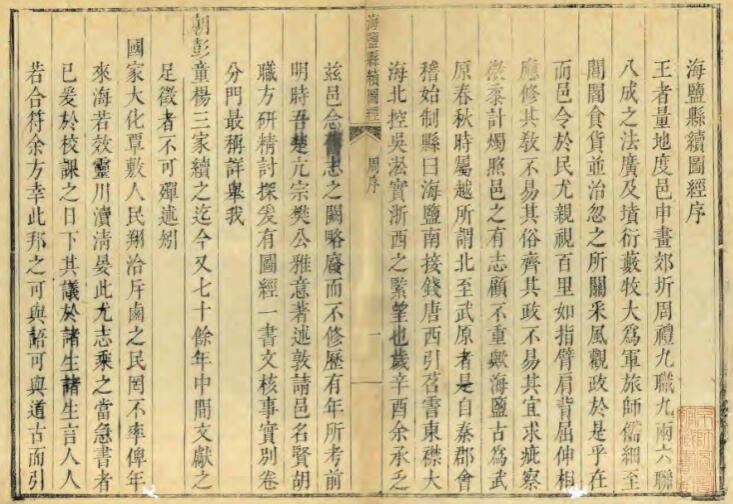 海鹽縣續圖經序
王者量地度邑申畫郊圻周禮九職九兩六聯
八成之法廣及墳衍藪牧大為軍旅師儒細至
閭閻食貨並治忽之所關采風觀政於是乎在
而邑令於民尤親視百里如指臂肩背屈伸相
應修其教不易其俗齊其政不易其宜求疵察
黍計燭照邑之有志顧不重歟海鹽古為武
原春秋時屬越所謂北至武原者是自秦郡會
稽始制縣曰海鹽南接錢唐西引苕霅東襟大
海北控吳淞實浙西之緊望也歲辛酉余承乏
海鹽縣續圖經
周序
一
茲邑念舊志之闕略廢而不修歷有年所考前
明時吾楚亢宗樊公雅意著述敦請邑名賢胡
職方研精討探爰有圖經一書文核事實別卷
分門最稱詳舉我
朝彭童楊三家續之迄今又七十餘年中間文獻之
足徵者不可殫述矧
國家大化覃敷人民翔洽斥鹵之民罔不率俾年
來海若效靈川瀆清晏此尤志乘之當急書者
已爰於校課之日下其議於諸生諸生言人人
若合符余方幸此邦之可與語可與道古而引